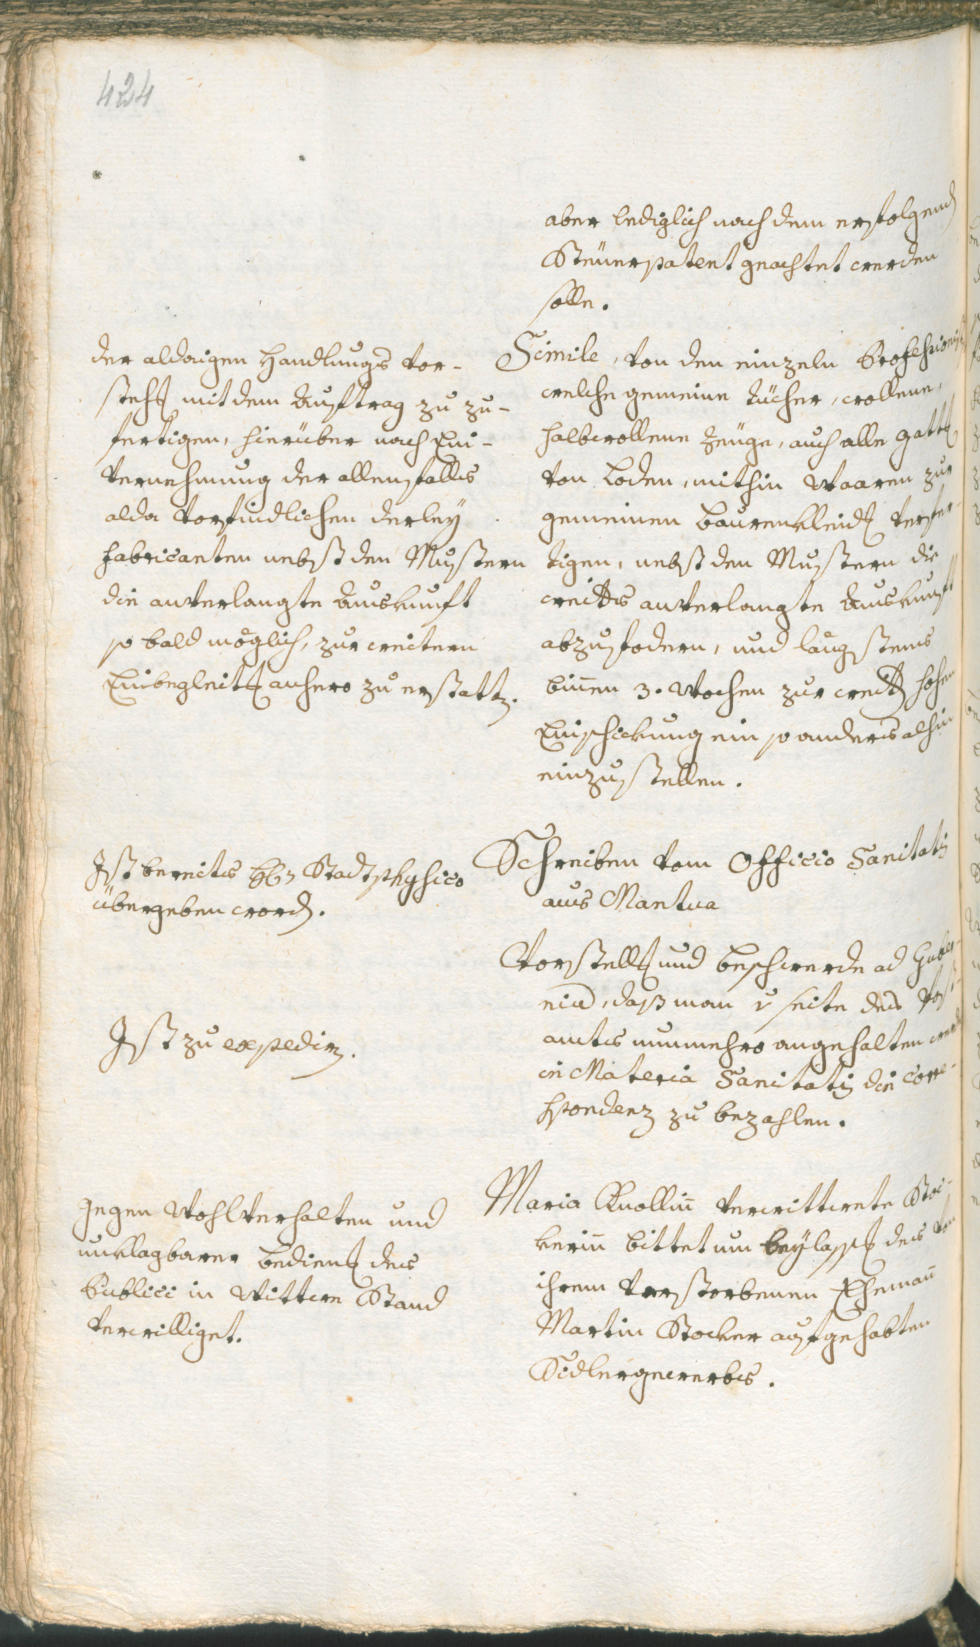 424
aber lediglich nach dem erfolgend
Steüerpatent geachtet werden
solle.
der aldaigen Handlungs vor-
stehg mit dem Auftrag zu zu-
fertigen, hierüber nach Ein-
vernehmung der allenfalls
alda vorfindlichen derley
Fabricanten nebst den Mustern
die anverlangte Auskunft
so bald möglich, zur weitern
Einbegleitg anhero zu erstattn.
Simile, von den einzeln Professioni
welche gemeine Tücher, wollene,
halbwollene Zeüge, auch alle gattg
von Loden, mithin Waaren zur
gemeinen Baurenkleidg verfer-
tigen, nebst den Mustern die
weiters anverlangte Auskunft
abzufodern, und längstens
binnen 3. Wochen zur weitn hohen
Einschickung ein so anders alhier
einzustellen.
Ist bereits Stadtphysico
übergeben word.
Schreiben vom Officio Sanitatis
aus Mantua
Ist zu expedirn.
Vorstellg und beschwerde ad Guber-
niu, daß man seite des Post-
amtes nunmehro angehalten
in Materia Sanitatis die Corre-
spondenz zu bezahlen.
Gegen Wohlverhalten und
unklagbarer bedieng des
Publici in Wittwen Stand
verwilliget.
Maria Knollin verwittwete Stoc-
kerin bittet um beylassg des von
ihrem verstorbenen Ehemann
Martin Stocker aufgehabten
Sidlergewerbs.